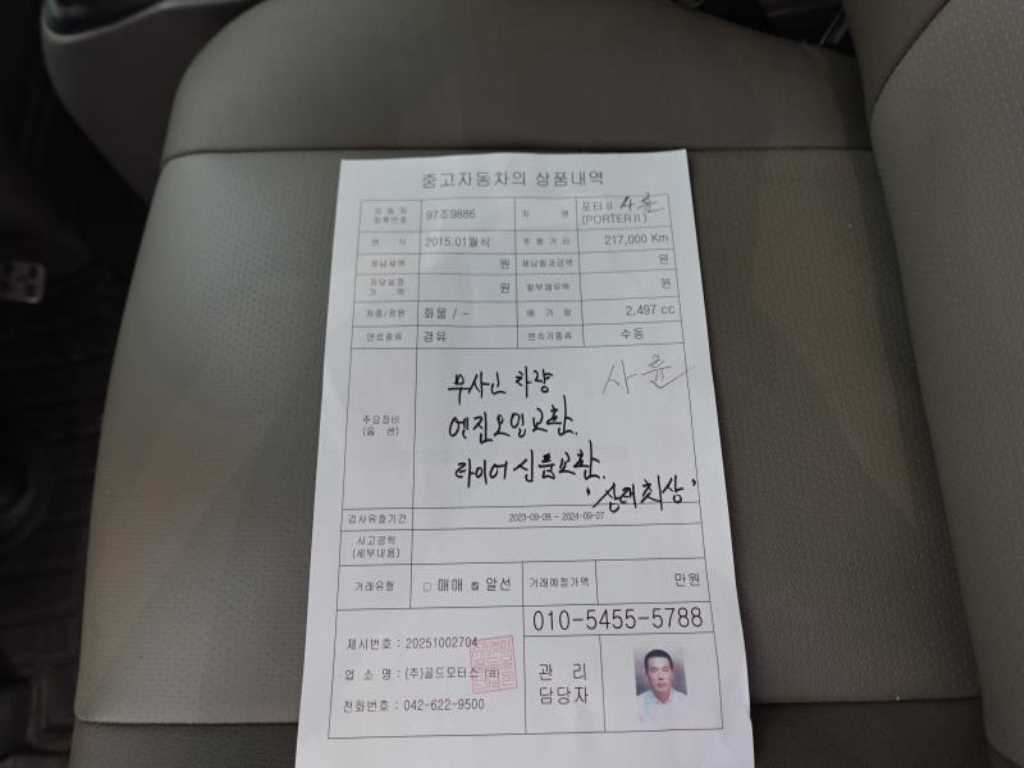 중고자동차의 상품내역
자동차 등록번호 97조9886 차 명 포터 II 사륜 (PORTER II)
연 식 2015.01월식 주행거리 217,000 Km
체납세액 원 체납범과금액 원
저당설정 가 액 원 할부매무액 원
차종/정원 화물 / - 배 기 량 2,497 cc
연료종류 경유 변속기종류 수동
사륜
무사고 차량
주요장비 (옵 션)
엔진오일교환.
타이어 신품교환.
'상태최상'
검사유효기간 2023-09-28 ~ 2024-09-27
사고경력 (세부내용)
거래유형 매매 알선 거래예정가액 만원
010-5455-5788
제시번호 : 20251002704
업 소 명 : (주)골드모터스
전화번호 : 042-622-9500
관 리
담당자